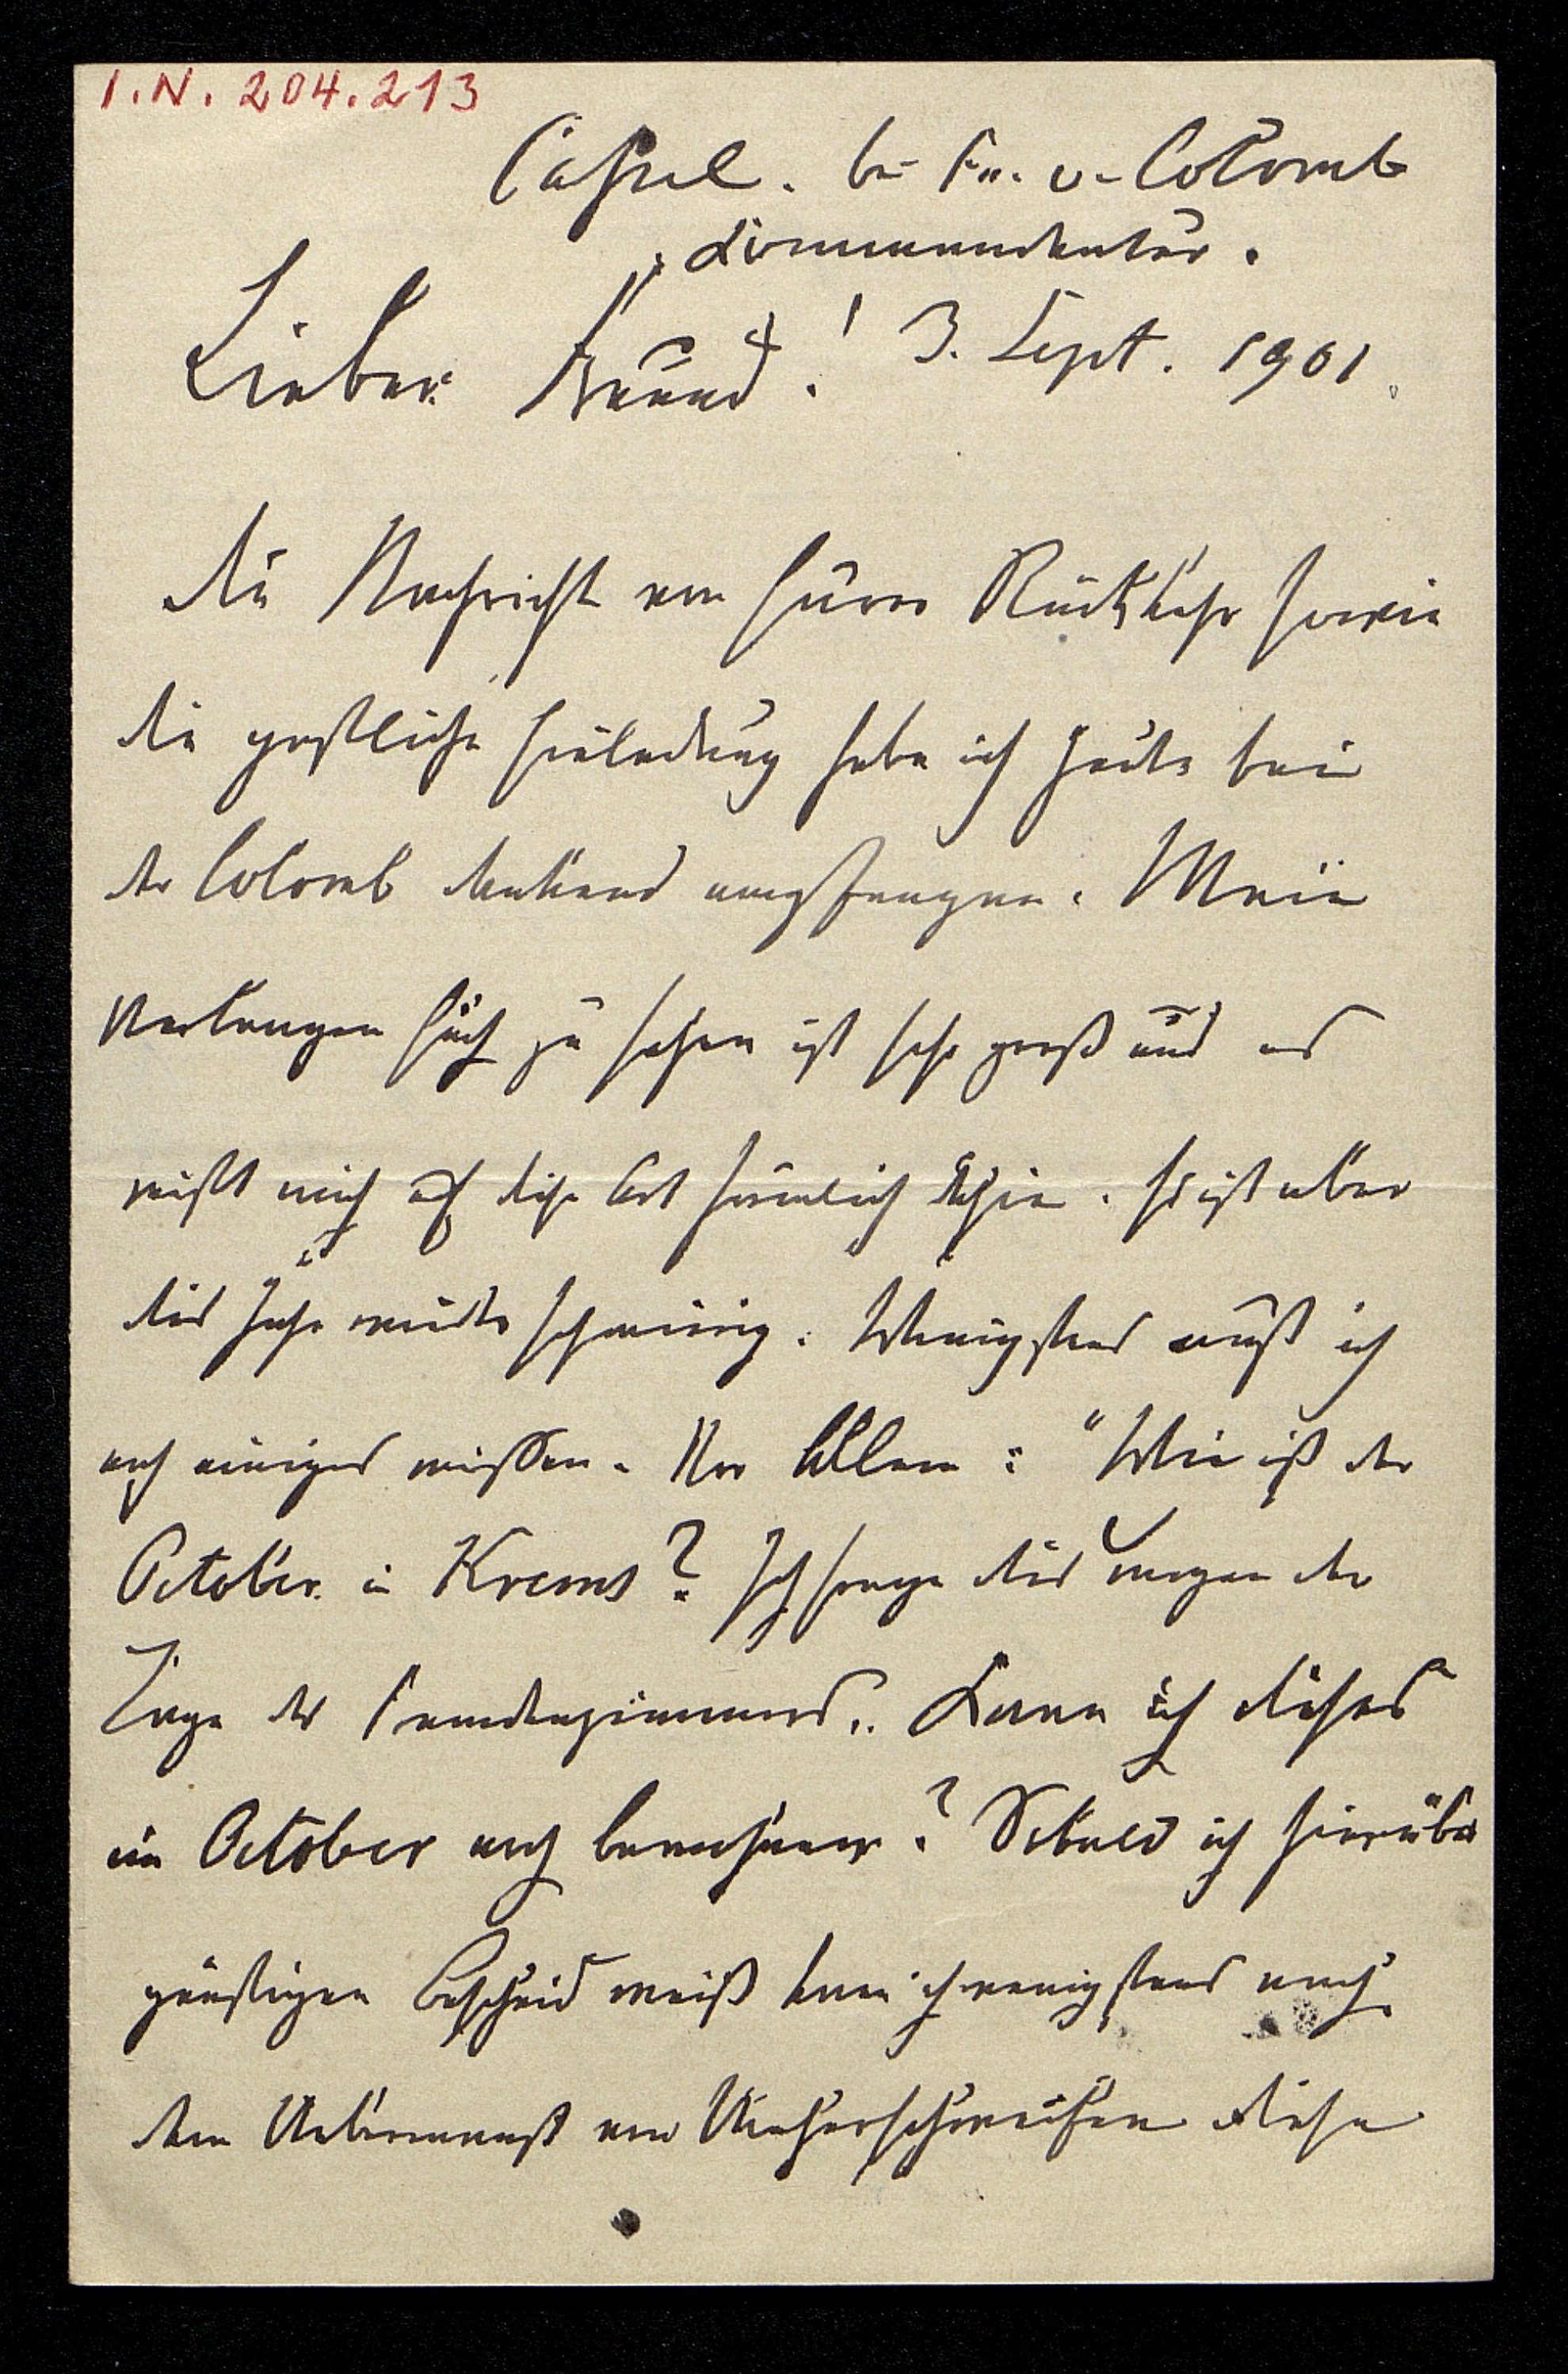 I.N. 204.213
Cassel. bei Fr. v. Colomb
Kommandantur.
Lieber Freund! 3. Sept. 1901.
Die Nachricht von Eurer Rückkehr sowie
die gastliche Einladung habe ich heute bei
der Colomb dankend empfangen. Mein
Verlangen Euch zu sehen ist sehr groß und es
reißt mich auf diese Art förmlich hin. Es ist aber
dies Jahr wieder schwierig. Wenigstens muß ich
noch einiges wissen. Vor Allem: "Wie ist der
October in Krems? Ich frage dies wegen der
Lage des Fremdenzimmers. Kann ich dieses
im October noch bewohnen? Sobald ich hierüber
günstigen Bescheid weiß kann ich wenigstens nach
dem Uebermaß von Umherschweifen diese